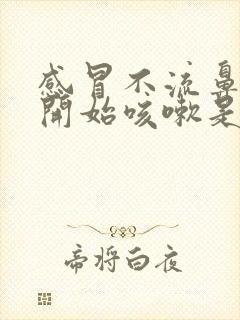 感冒不流鼻
開始咳嗽是
帝将白夜